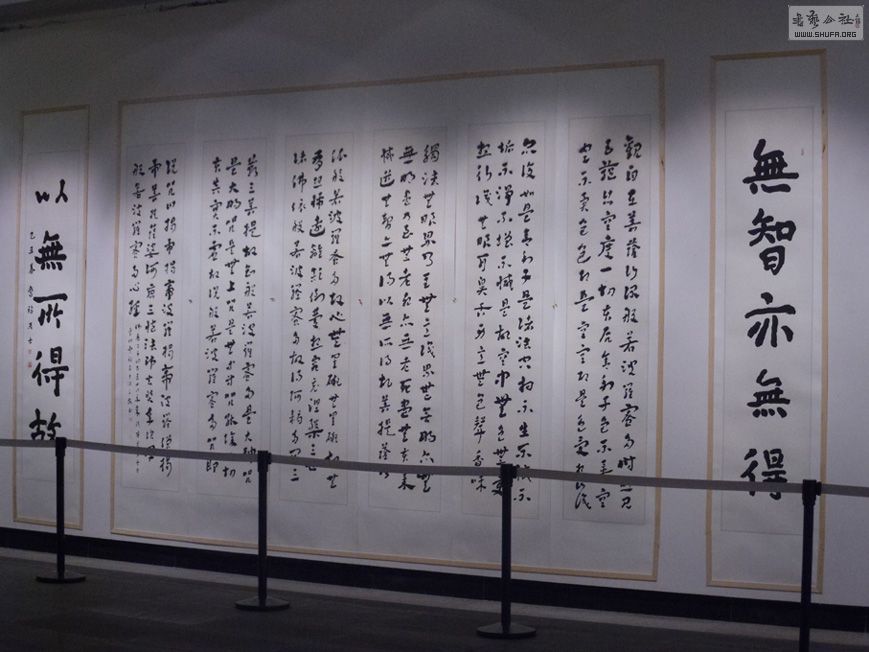 書藝公社
WWW.SHUFA.ORG
無智亦無得
觀自在菩薩行深般若波羅密多時照見
五蘊皆空度一切苦厄舍利子色不異空
空不異色色即是空空即是色受想行識
亦復如是舍利子是諸法空相不生不滅不
垢不淨不增不減是故空中無色無受
想行識無眼耳鼻舌身意無色聲香味
觸法無眼界乃至無意識界無無明亦無
無明盡乃至無老死亦無老死盡無苦集
滅道無智亦無得以無所得故菩提薩埵
依般若波羅密多故心無罣礙無罣礙故無
有恐怖遠離顛倒夢想究竟涅槃三世
諸佛依般若波羅密多故得阿耨多羅三
藐三菩提故知般若波羅密多是大神咒
是大明咒是無上咒是無等等咒能除一切
苦真實不虛故說般若波羅密多咒即
說咒曰揭帝揭帝波羅揭帝波羅僧揭
帝菩提薩婆訶唐三藏法師玄奘奉詔譯
般若波羅密多心經
以無所得故
己丑春